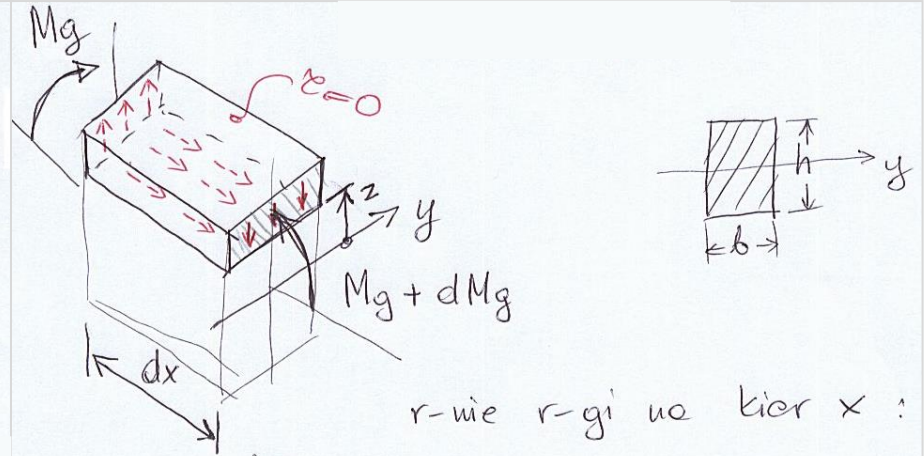 Mg
τ=0
z
y
Mg + dMg
dx
h
y
b
r-nie r-gi na kier x :